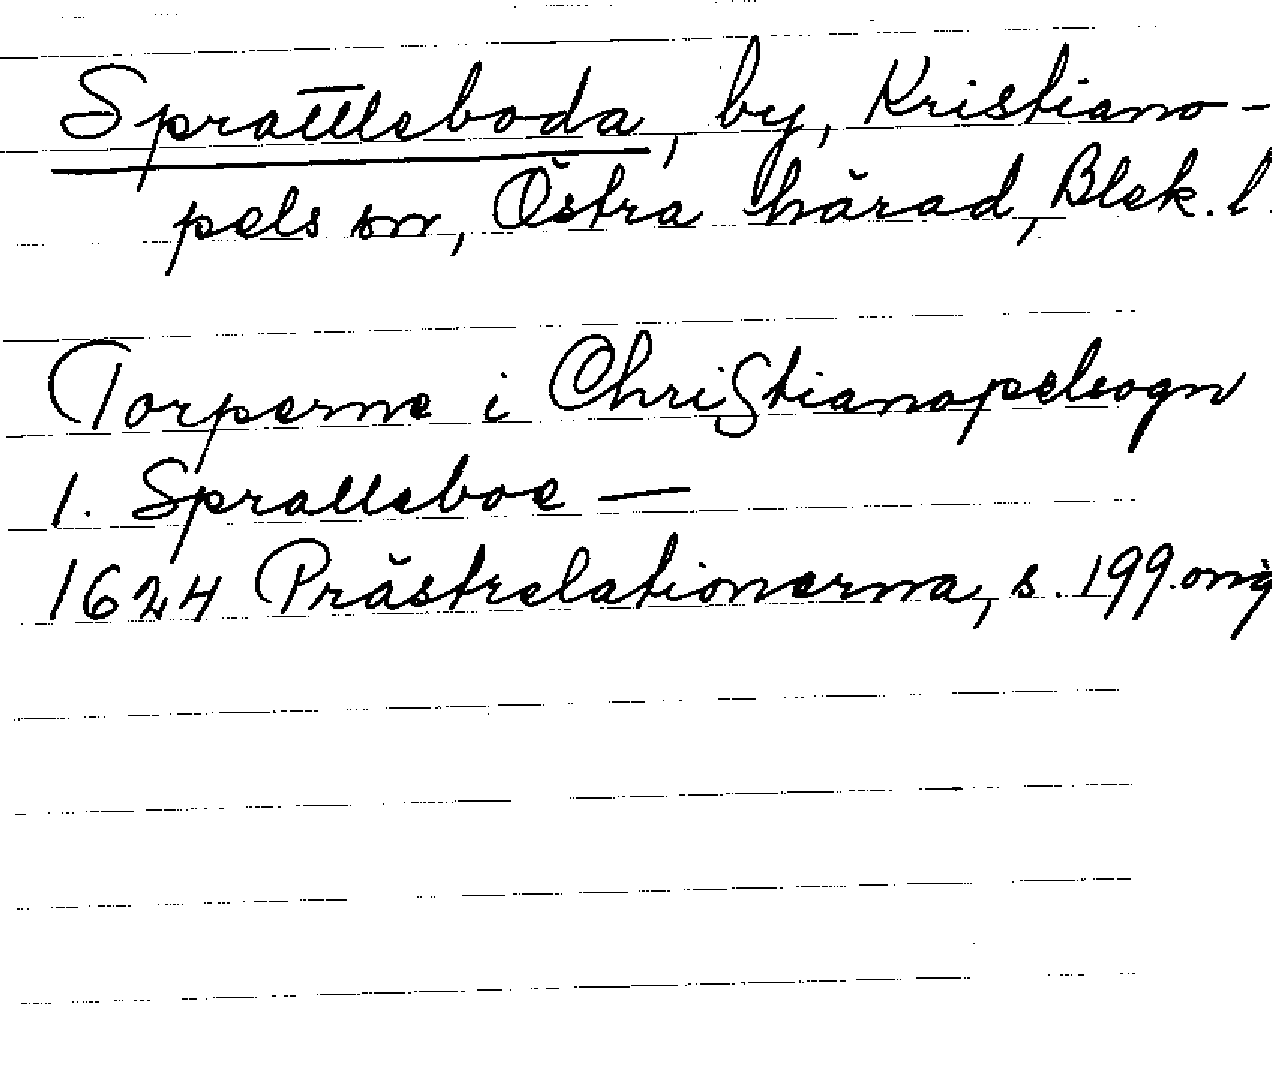 Sprattleboda, by, Kristiano-
pels sn, Östra härad, Blek. l.
Torperne i Christianopelsogn
1. Spralleboe —
1624 Prästrelationerna, s. 199. orig